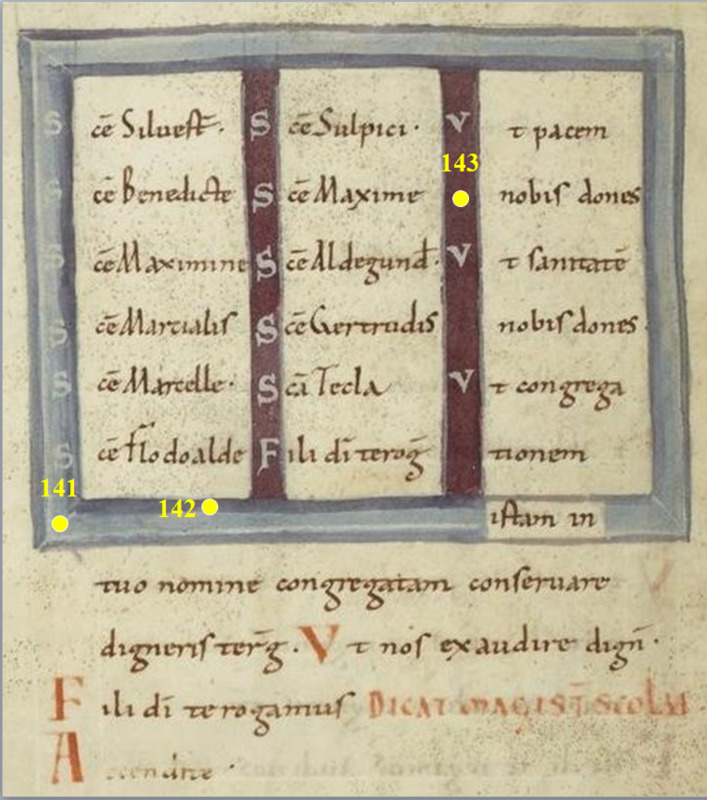 S cē Siluest̄·
S cē Benedicte
S cē Maximine
S cē Martialis
S cē Marcelle·
S cē Flodoalde
S cē Sulpici·
S cē Maxime
S cē Aldegund·
S cē Gertrudis
S cā Tecla
F ili dī teroḡ
V t pacem
nobis dones
V t sanitatē
nobis dones·
V t congrega
tionem
istam in
tuo nomine congregatam conseruare
digneris terḡ. V t nos exaudire digñ·
F ili dī te rogamus DICAT MAGIST̄ SCOLAE
A ccendite·
141
142
143